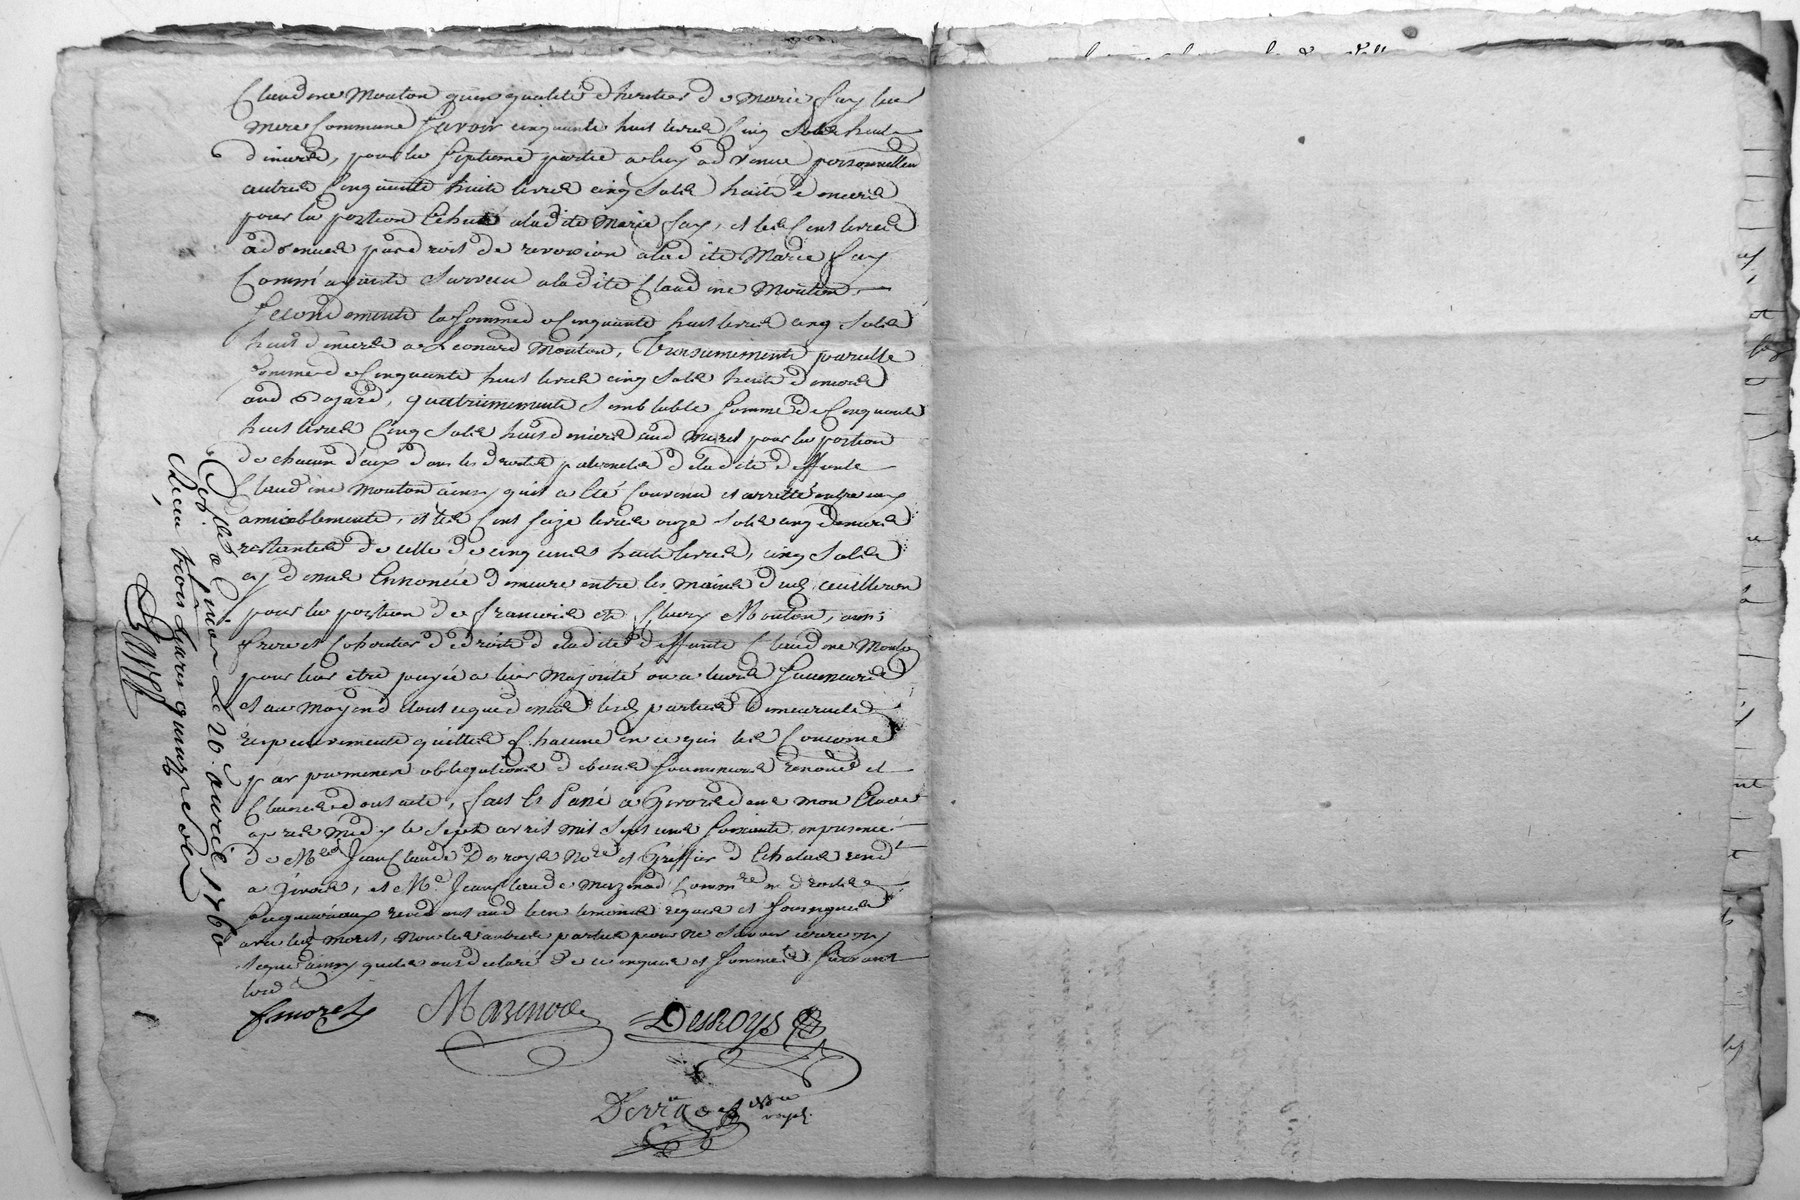 Claudine Mouton qu'en qualité d'heritier de Marie Fay leur
mere Commune Savoir cinquante huit livres Cinq Sols huit
deniers, pour la septieme partie a luy advenue personnellem
autres Cinquante huite livres cinq Sols huite deniers
pour la portion Echute aladite Marie Fay, et les Cent livres
advenues par droit de reversion aladite Marie Fay
Comm' ayante Survecu aladite Claudine Mouton.
Secondemente la Somme de Cinquante huit livres cinq Sols
huit deniers a Leonard Mouton, Troisiememente pareille
Somme de Cinquante huit livres cinq Sols huite deniers
aud, quatriemement Semblable Somme de Cinquante
huit livres Cinq Sols huit deniers aud Moret pour la portion
de chacun d'eux dans les droits paternels deladite deffunte
Claudine Mouton ainsy quil a Eté Convenu et arrêtté entre eux
amiablemente, et les Cent Seize livres onze Sols cinq deniers
restantes de celle de cinq cents huite livres, cinq Sols
cy devant Ennoncée demeure entre les mains dud. Cuilleron
pour la portion de francois et fleury Mouton, aussi
frere et Coheritier de droits deladite deffunte Claudine Mouton
pour leur être payée a leur Majorité ou a leurs
et au moyend toute ce que devant lesd. parties demeurent
respectivemente quittes Chacune en ce qui les Concerne
par promesses obligations de biens Soumissions renonc. et
Clauses dont acte, fait et Passé a Givors dans mon Etude
apres midy le Sept avril mil Sept cent Soixante en presence
de Mre Jean Claude Desroys Nre et Greffier d'Echalas resid.t
a Givors, et Me Jean Claude Mazenod Comm.re en droits
Seigneuriaux residant aud lieu temoins requis et Soussignés
avec led. Moret, non les autres parties pour ne Savoir ecrire ny
signer ainsy quils ont declaré de ce enquis et Sommés Suivant
lord
f moret
Mazenod
Desroys
Controllé a Givors Le 20. avril 1760
Receu trois livres quinze sols